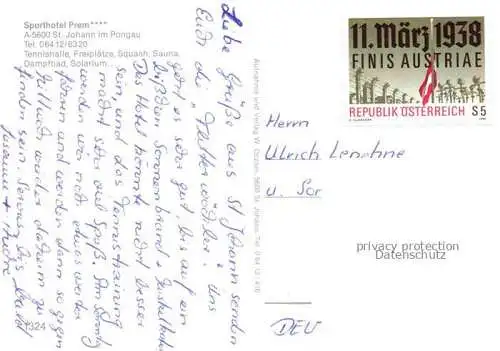 Sporthotel Prem****
A-5600 St. Johann im Pongau
Tel. 06412/6320
Tennishalle, Freiplätze, Squash, Sauna,
Dampfbad, Solarium...
Liebe Grüße aus St. Johann senden
Euch die
geht es sehr gut, bis auf ein
bißchen Sonnenbrand + Muskelkater
Das Hotel könnte nicht besser
sein, und das Tennistraining
macht sehr viel Spaß. Am Sonntag
werden wir noch etwas
fahren und werden dann so gegen
wieder daheim zu
finden sein. Servus, bis bald!
1324
Aufnahme und Verlag W. 5600 St. Johann, Tel. 0 64 12
11. März 1938
FINIS AUSTRIAE
REPUBLIK ÖSTERREICH S 5
Herrn
Ulrich
u.
privacy protection
Datenschutz
DEU